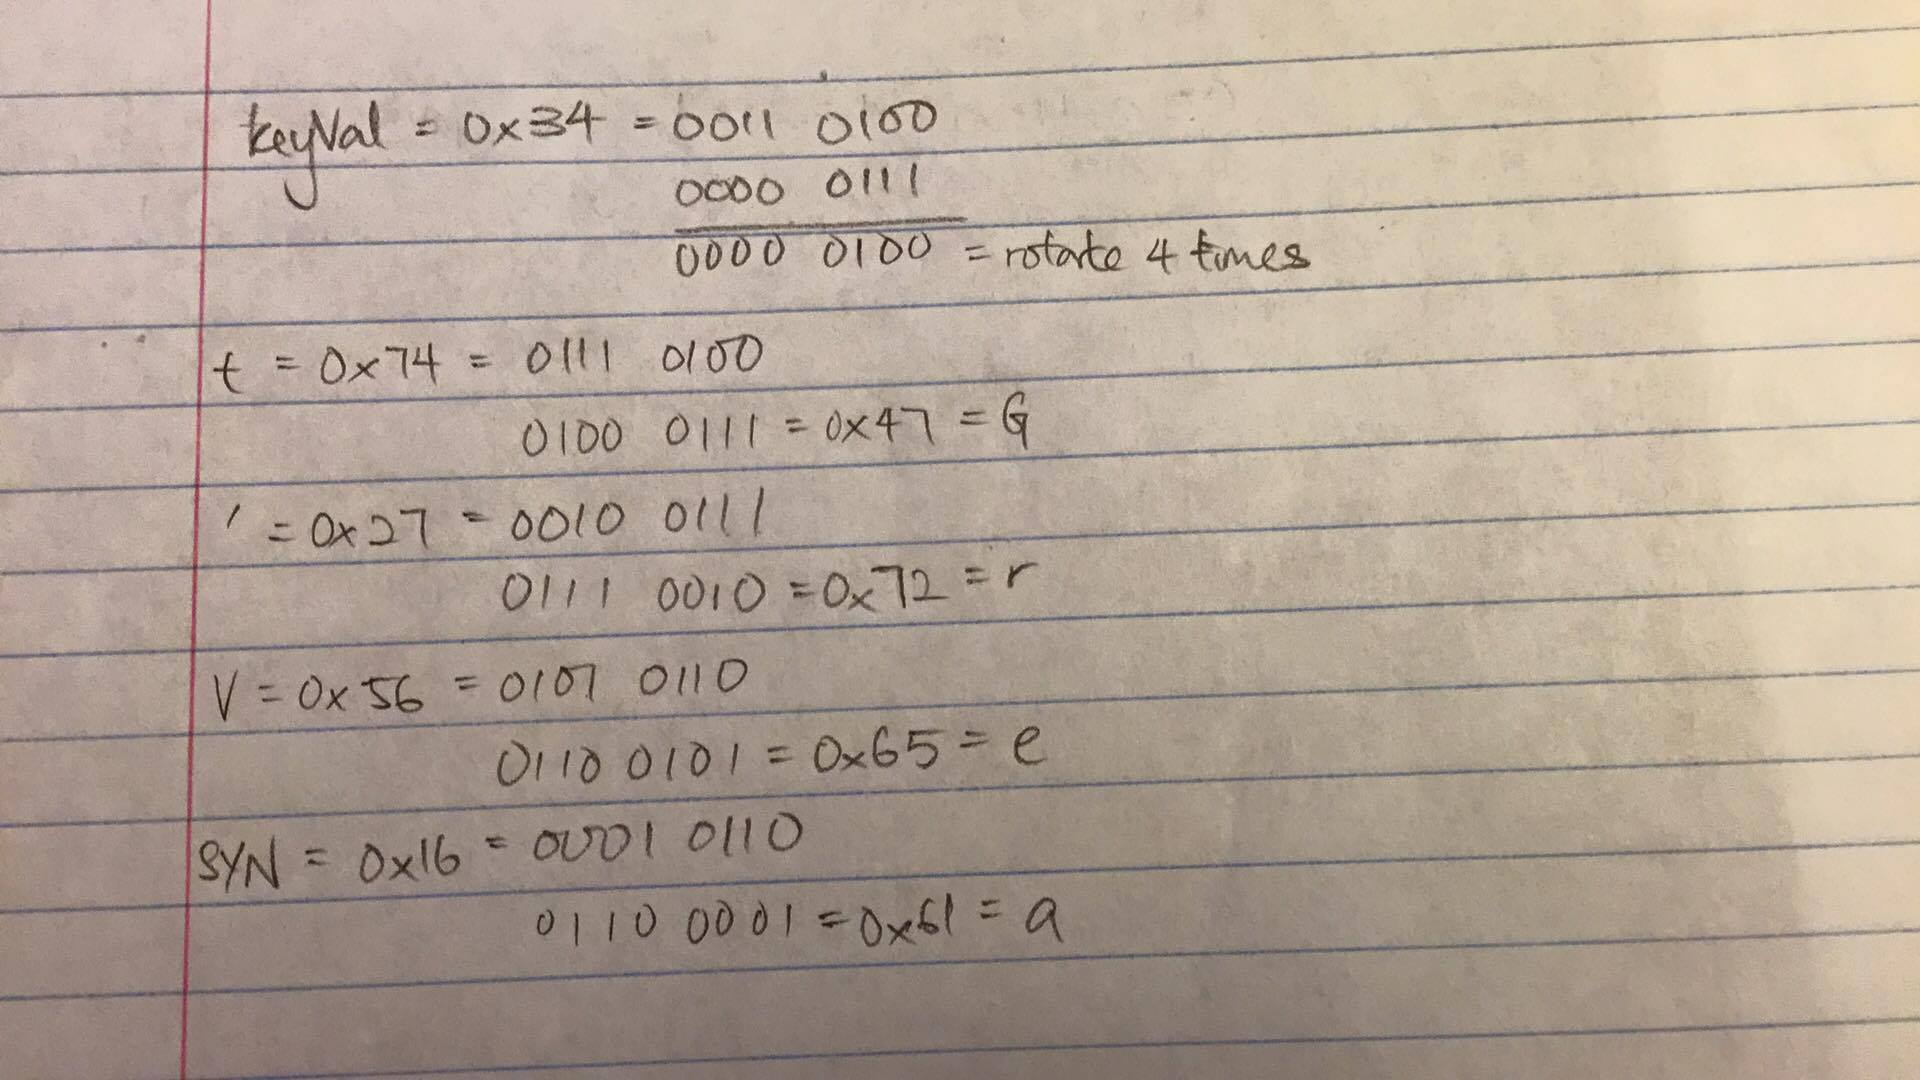 keyVal = 0x34 = 0011 0100
0000 0111
0000 0100 = rotate 4 times
t = 0x74 = 0111 0100
0100 0111 = 0x47 = G
' = 0x27 = 0010 0111
0111 0010 = 0x72 = r
V = 0x56 = 0101 0110
0110 0101 = 0x65 = e
SYN = 0x16 = 0001 0110
0110 0001 = 0x61 = a